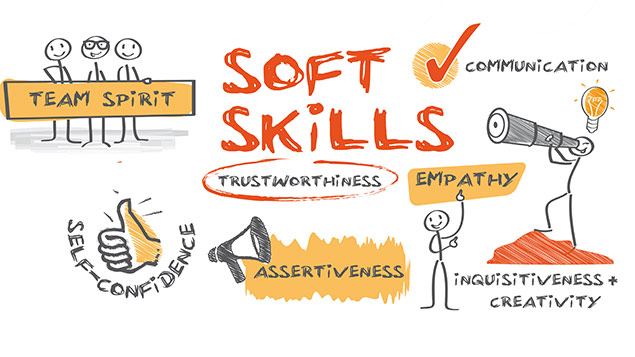 SOFT
SKILLS
TEAM SPIRIT
COMMUNICATION
TRUSTWORTHINESS
EMPATHY
SELF-CONFIDENCE
ASSERTIVENESS
INQUISITIVENESS +
CREATIVITY